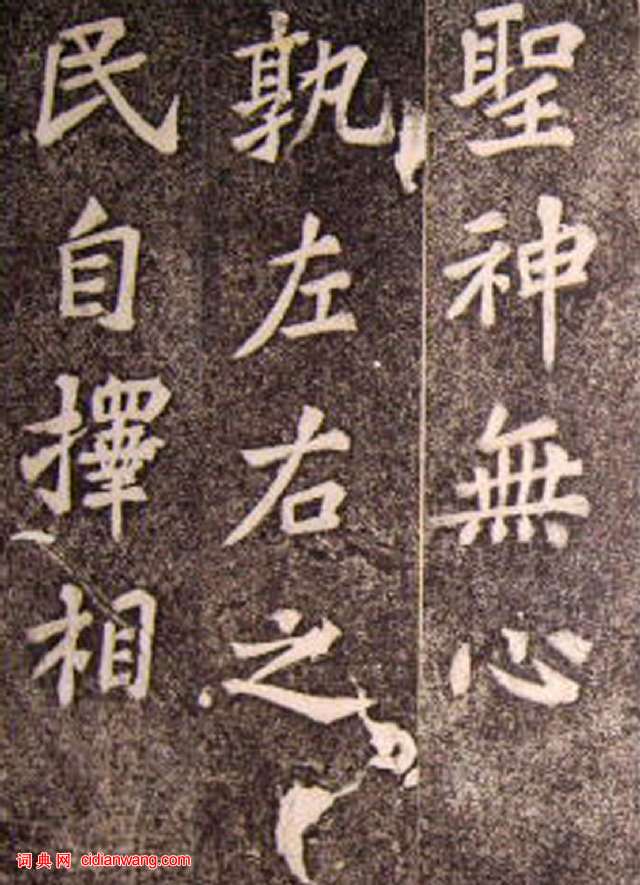 聖神無心
孰左右之
民自擇相
词典网 cidianwang.com